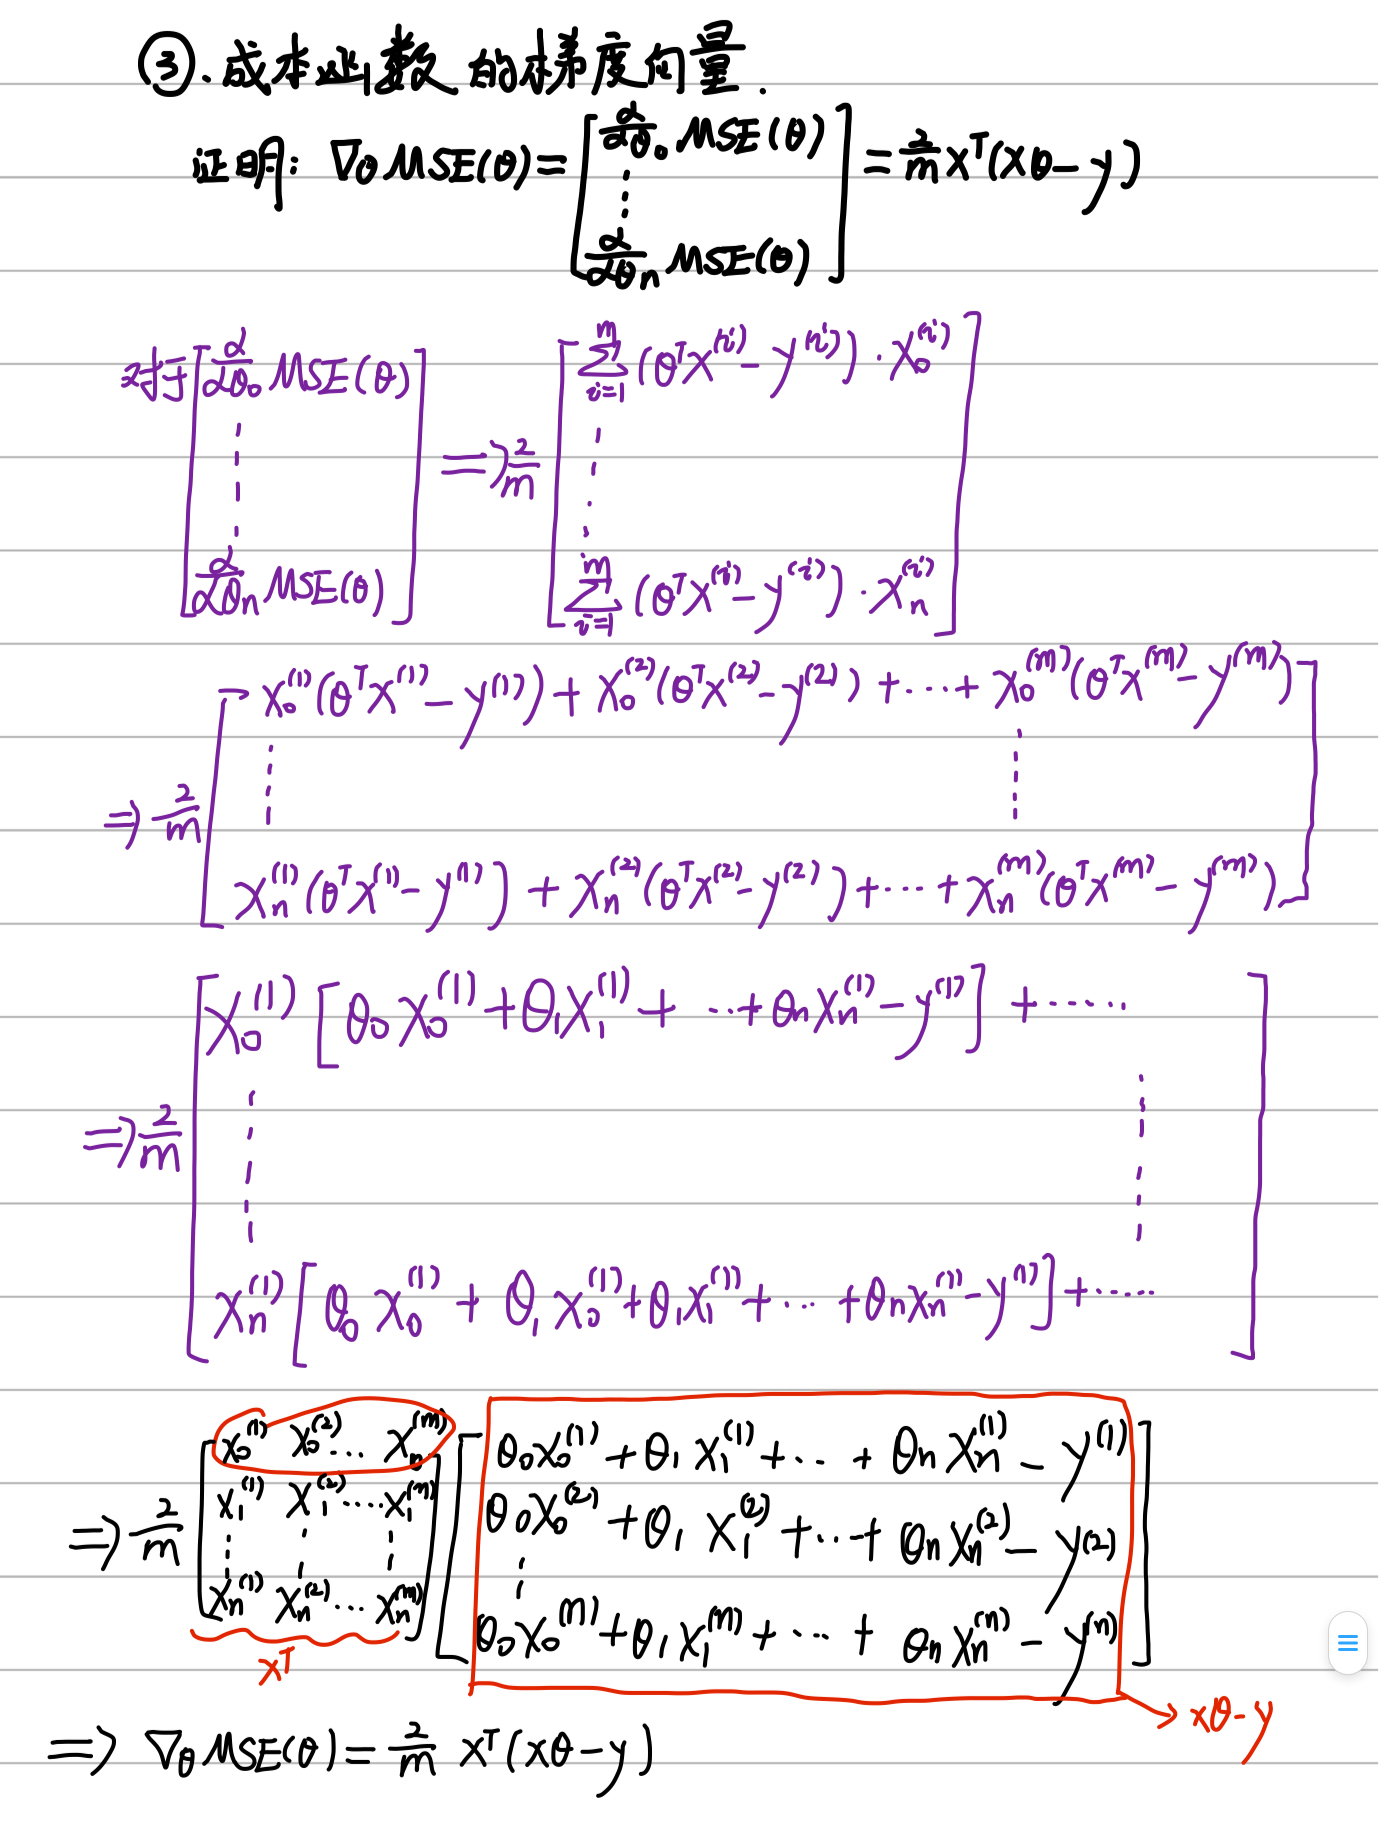 ③.成本函数的梯度向量.
证明: ∇θ MSE(θ) = [ α/αθ₀ MSE(θ) ⋮ α/αθn MSE(θ) ] = 2/m Xᵀ(Xθ-y)
对于 [ α/αθ₀ MSE(θ) ⋮ α/αθn MSE(θ) ] ⇒ 2/m [ Σ_{i=1}^{m} (θᵀX^(i) - y^(i))·X₀^(i) ⋮ Σ_{i=1}^{m} (θᵀX^(i) - y^(i))·Xn^(i) ]
⇒ 2/m [ X₀^(1)(θᵀX^(1) - y^(1)) + X₀^(2)(θᵀX^(2) - y^(2)) + ⋯ + X₀^(m)(θᵀX^(m) - y^(m))
⋮ ⋮
Xn^(1)(θᵀX^(1) - y^(1)) + Xn^(2)(θᵀX^(2) - y^(2)) + ⋯ + Xn^(m)(θᵀX^(m) - y^(m)) ]
⇒ 2/m [ X₀^(1) [θ₀X₀^(1) + θ₁X₁^(1) + ⋯ + θnXn^(1) - y^(1)] + ⋯⋯
⋮ ⋮
Xn^(1) [θ₀X₀^(1) + θ₁X₀^(1) + θ₁X₁^(1) + ⋯ + θnXn^(1) - y^(1)] + ⋯⋯ ]
⇒ 2/m [ X₀^(1) X₀^(2) ⋯ Xn^(m) ] [ θ₀X₀^(1) + θ₁X₁^(1) + ⋯ + θnXn^(1) - y^(1) ]
[ X₁^(1) X₁^(2) ⋯ X₁^(m) ] [ θ₀X₀^(2) + θ₁X₁^(2) + ⋯ + θnXn^(2) - y^(2) ]
⋮ ⋮ ⋮ ⋮
[ Xn^(1) Xn^(2) ⋯ Xn^(m) ] [ θ₀X₀^(m) + θ₁X₁^(m) + ⋯ + θnXn^(n) - y^(n) ]
Xᵀ
Xθ-y
⇒ ∇θ MSE(θ) = 2/m Xᵀ(Xθ-y)